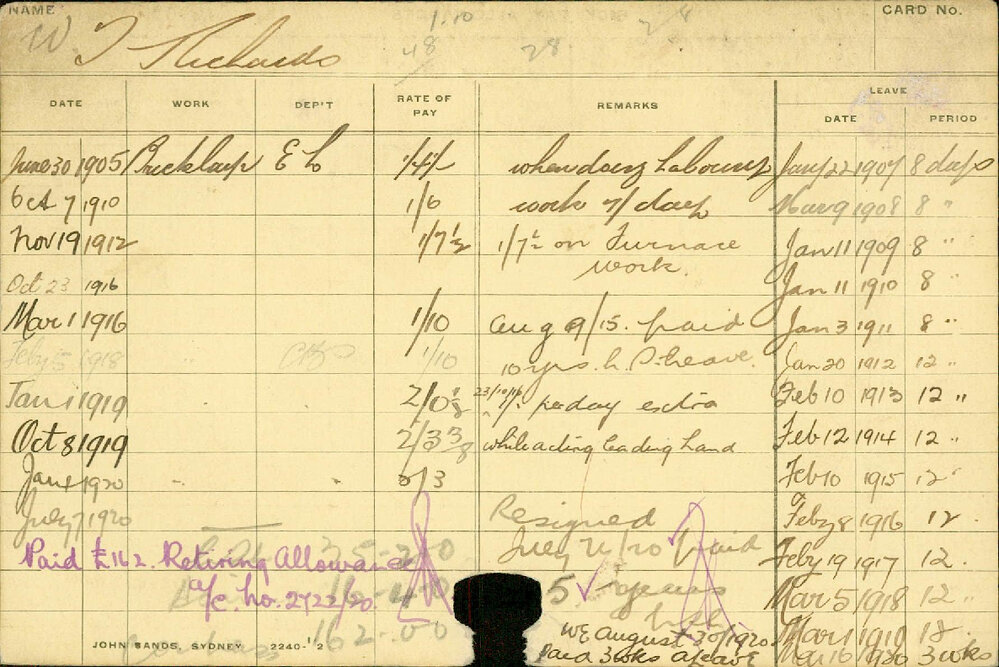 NAME
CARD No.
1.10
W J Richards
48
28
DATE WORK DEP'T RATE OF PAY REMARKS LEAVE
DATE PERIOD
June 30 1905 Bricklayer E L 1/4½ when doing Labouring Jany 22 1907 8 days
Oct 7 1910 1/6 work 7/ day Mar 9 1908 8 "
Nov 19 1912 1/7½ 1/7½ on Furnace Jan 11 1909 8 "
work.
Oct 23 1916 Jan 11 1910 8 "
Mar 1 1916 1/10 Aug 9/15. paid Jan 3 1911 8 "
Feby 5 1918 " 1/10 10 yrs. L. S. Leave. Jan 20 1912 12 "
Jan 1 1919 2/0⅛ 23/10/16 1/- per day extra Feb 10 1913 12 "
Oct 8 1919 2/3⅜ while acting leading hand Feb 12 1914 12 "
Jan 1 1920 " Feb 10 1915 12 "
July 7 1920 Resigned Feby 8 1916 12 "
Paid £162. Retiring Allowance July 7/20 paid Feby 19 1917 12 "
a/c. No. 2722/20. 5 years Mar 5 1918 12 "
162-0-0
WE August 30/1920 Mar 1 1919 12 "
JOHN SANDS, SYDNEY 2240-½ paid 3 wks a/leave Mar 16 1920 3 wks